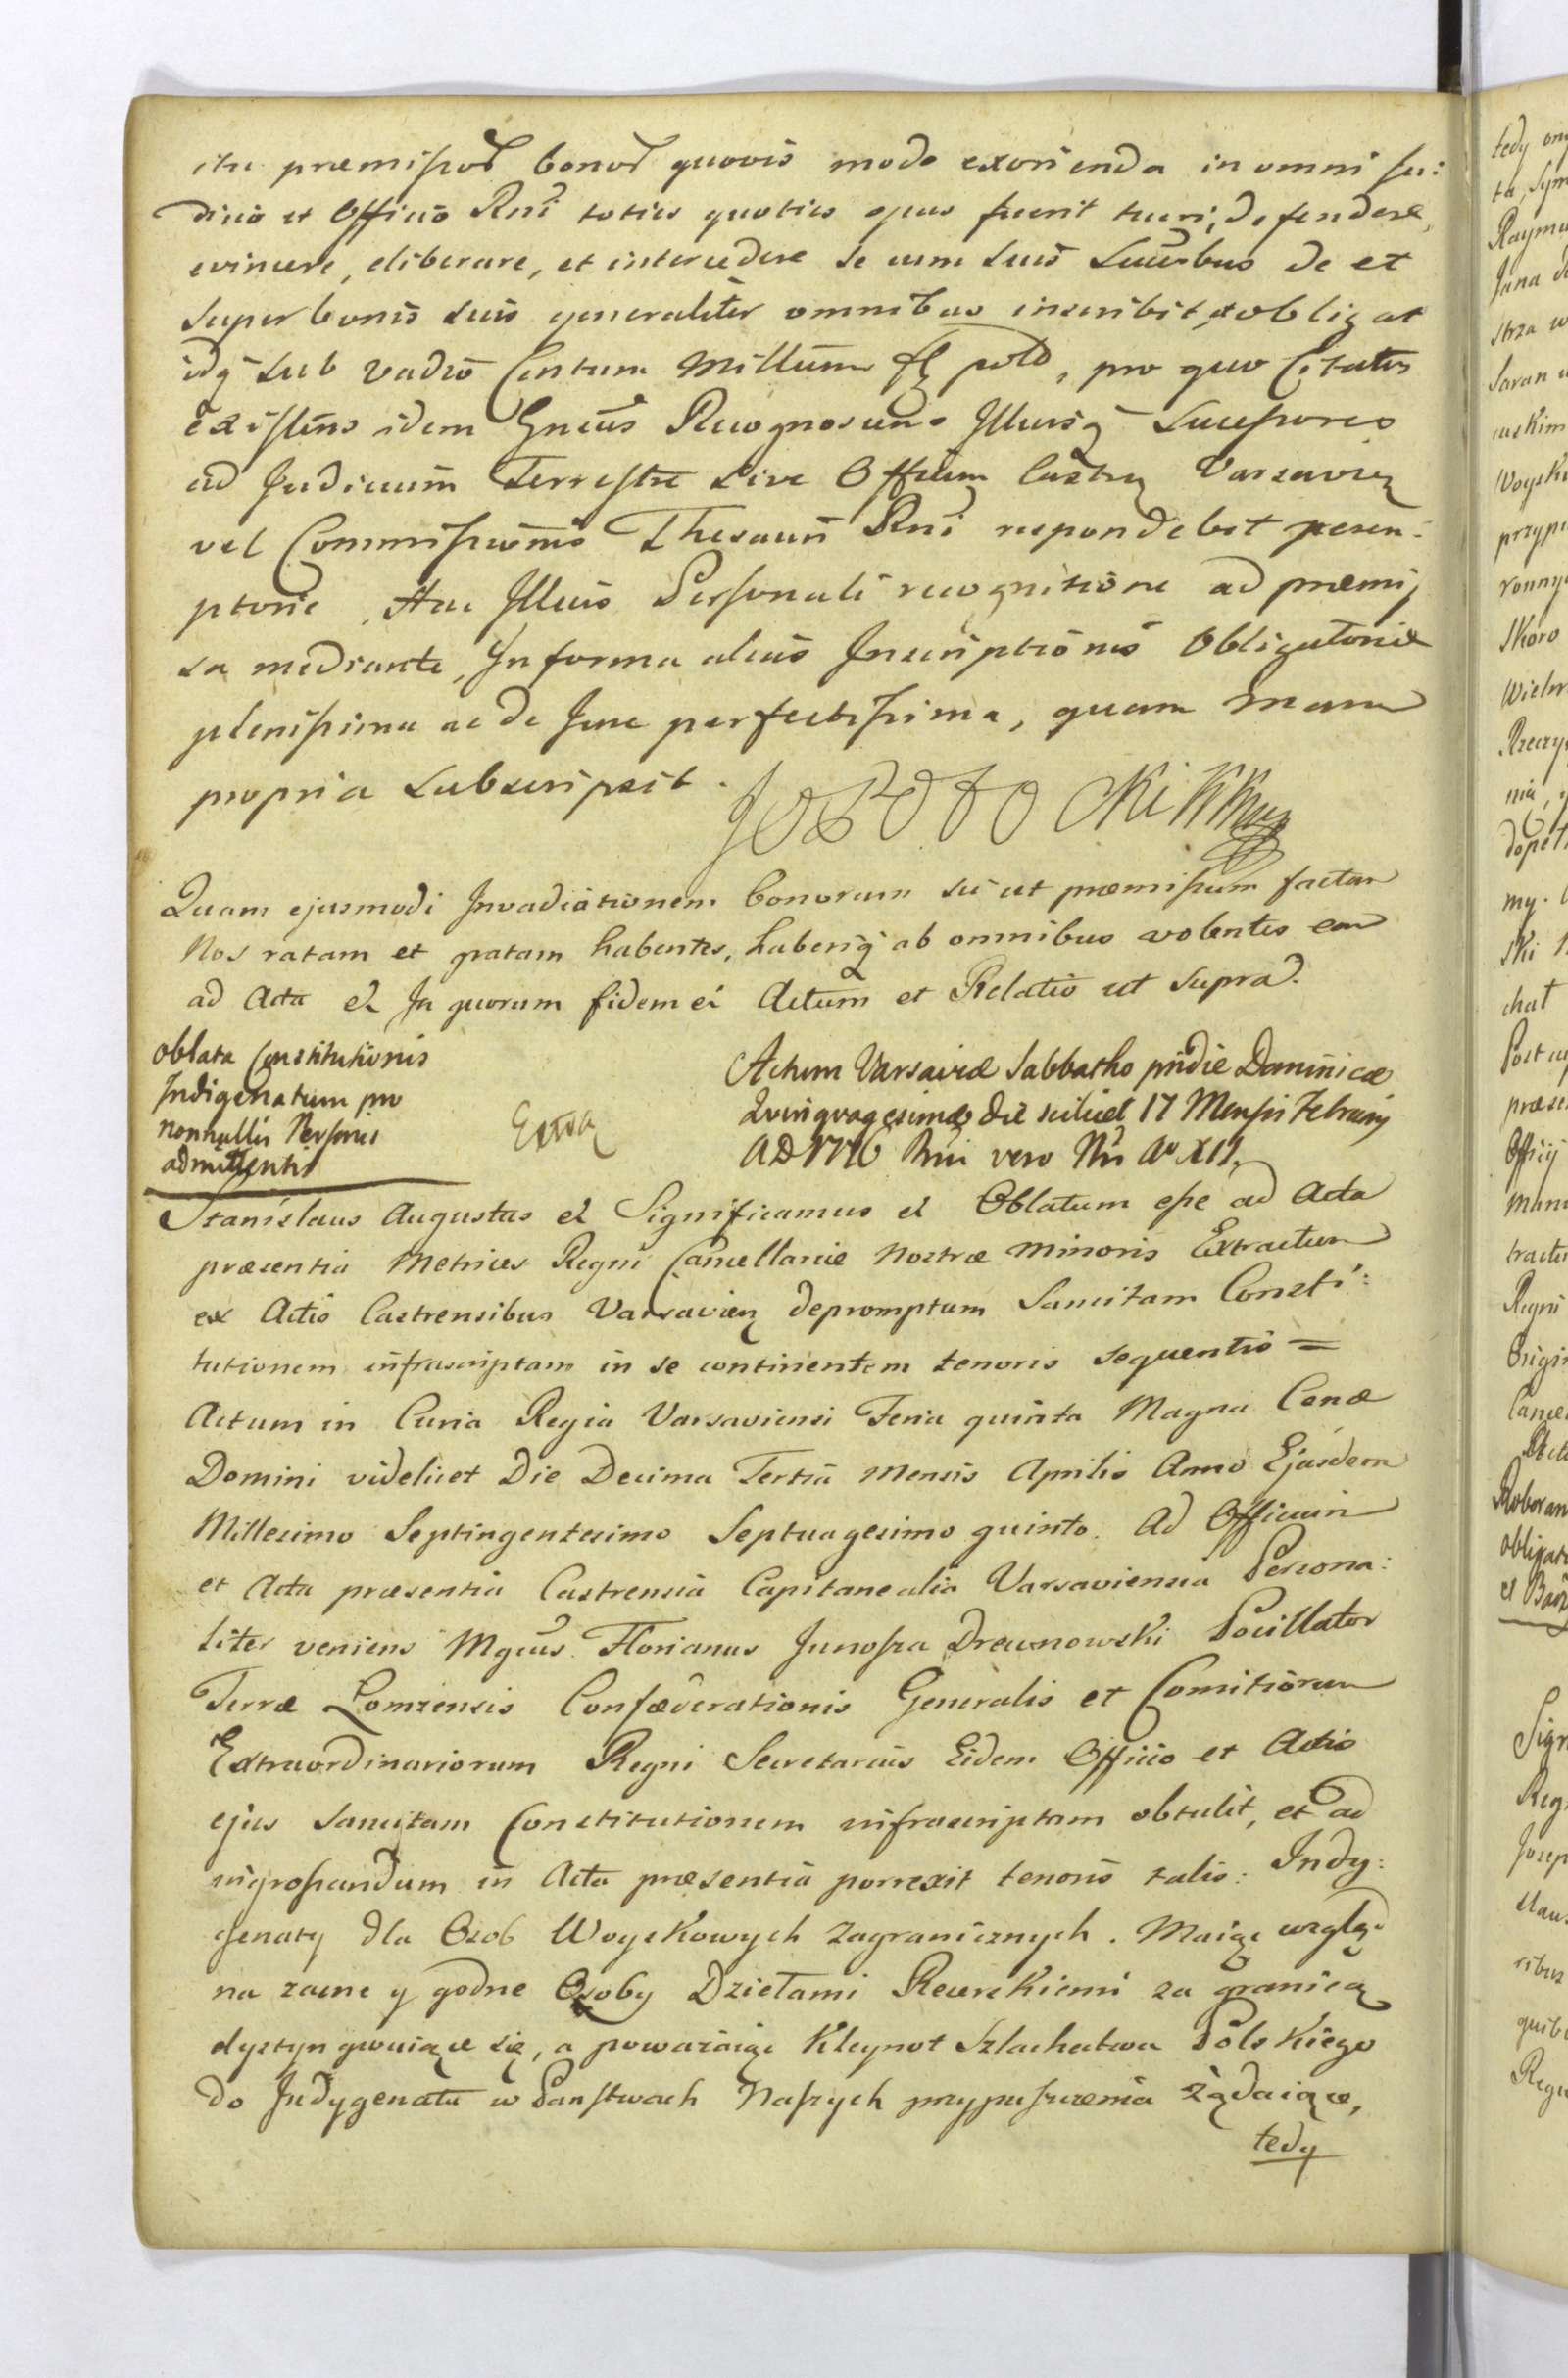 itu præmissor bonor quovis modo exorienda in omni Ju:
dicio et Officio Rni toties quoties opus fuerit tueri, defendere,
evincere, eliberare, et intercedere se cum suis Succoribus de et
super bonis suis generaliter omnibus inscribit, et obligat
idq sub vadio Centum Millium fl pold, pro quo Citatus
existens idem Gnsus Recognoscens Illiusq Successores
ad Judicium Terrestre sive Offium Castren Varsavien
vel Commissionis Thesauri Rni respondebit perem:
ptorie. Hac Illius Personali recognitione ad præmis
sa mediante, In forma alius Inscriptionis Obligatoriæ
plenissima ac de Jure perfectissima, quam manu
propria subscripsit.
Quam ejusmodi Invadiationem bonorum sic ut præmissum factam
Nos ratam et gratam habentes, haberiq ab omnibus volentes eam
ad Acta et In quorum fidem et Actum et Relatio ut supra.
Oblata Constitutionis
Indigenatum pro
nonnullis Personis
admittentis
Actum Varsaviæ Sabbatho pridie Dominicæ
Quinquagesimæ die scilicet 17 Mensis Februarij
AD 1776 Rni vero Nri Ao XII.
Stanislaus Augustus et Significamus et Oblatum esse ad Acta
præsentia Metrices Regni Cancellariæ Nostræ Minoris Extractum
ex Actis Castrensibus Varsavien depromptum Sancitam Consti:
tutionem infrascriptam in se continentem tenoris sequentis =
Actum in Curia Regia Varsaviensi Feria quinta Magna Cenæ
Domini videlicet Die Decima Tertia Mensis Aprilis Anno Ejusdem
Millesimo Septingentesimo Septuagesimo quinto. Ad Officium
et Acta præsentia Castrensia Capitanealia Varsaviensia Persona:
liter veniens Mgcus Florianus Junosza Drewnowski Pocillator
Terræ Lomzensis Confæderationis Generalis et Comitiorum
Extraordinariorum Regni Secretarius Eidem Officio et Actis
ejus sancitam Constitutionem infrascriptam obtulit, et ad
ingrossandum in Acta præsentia porrexit tenoris talis: Indy:
genaty dla Osob Woyskowych Zagranicznych. Maiąc wzgląd
na zacne y godne Osoby Dziełami Rycerskiemi za granicą
dystyngwuiące się, a poważaiąc Kleynot Szlachectwa Polskiego
do Indygenatu w Państwach Naszych przypuszczenia żądaiące,
tedy